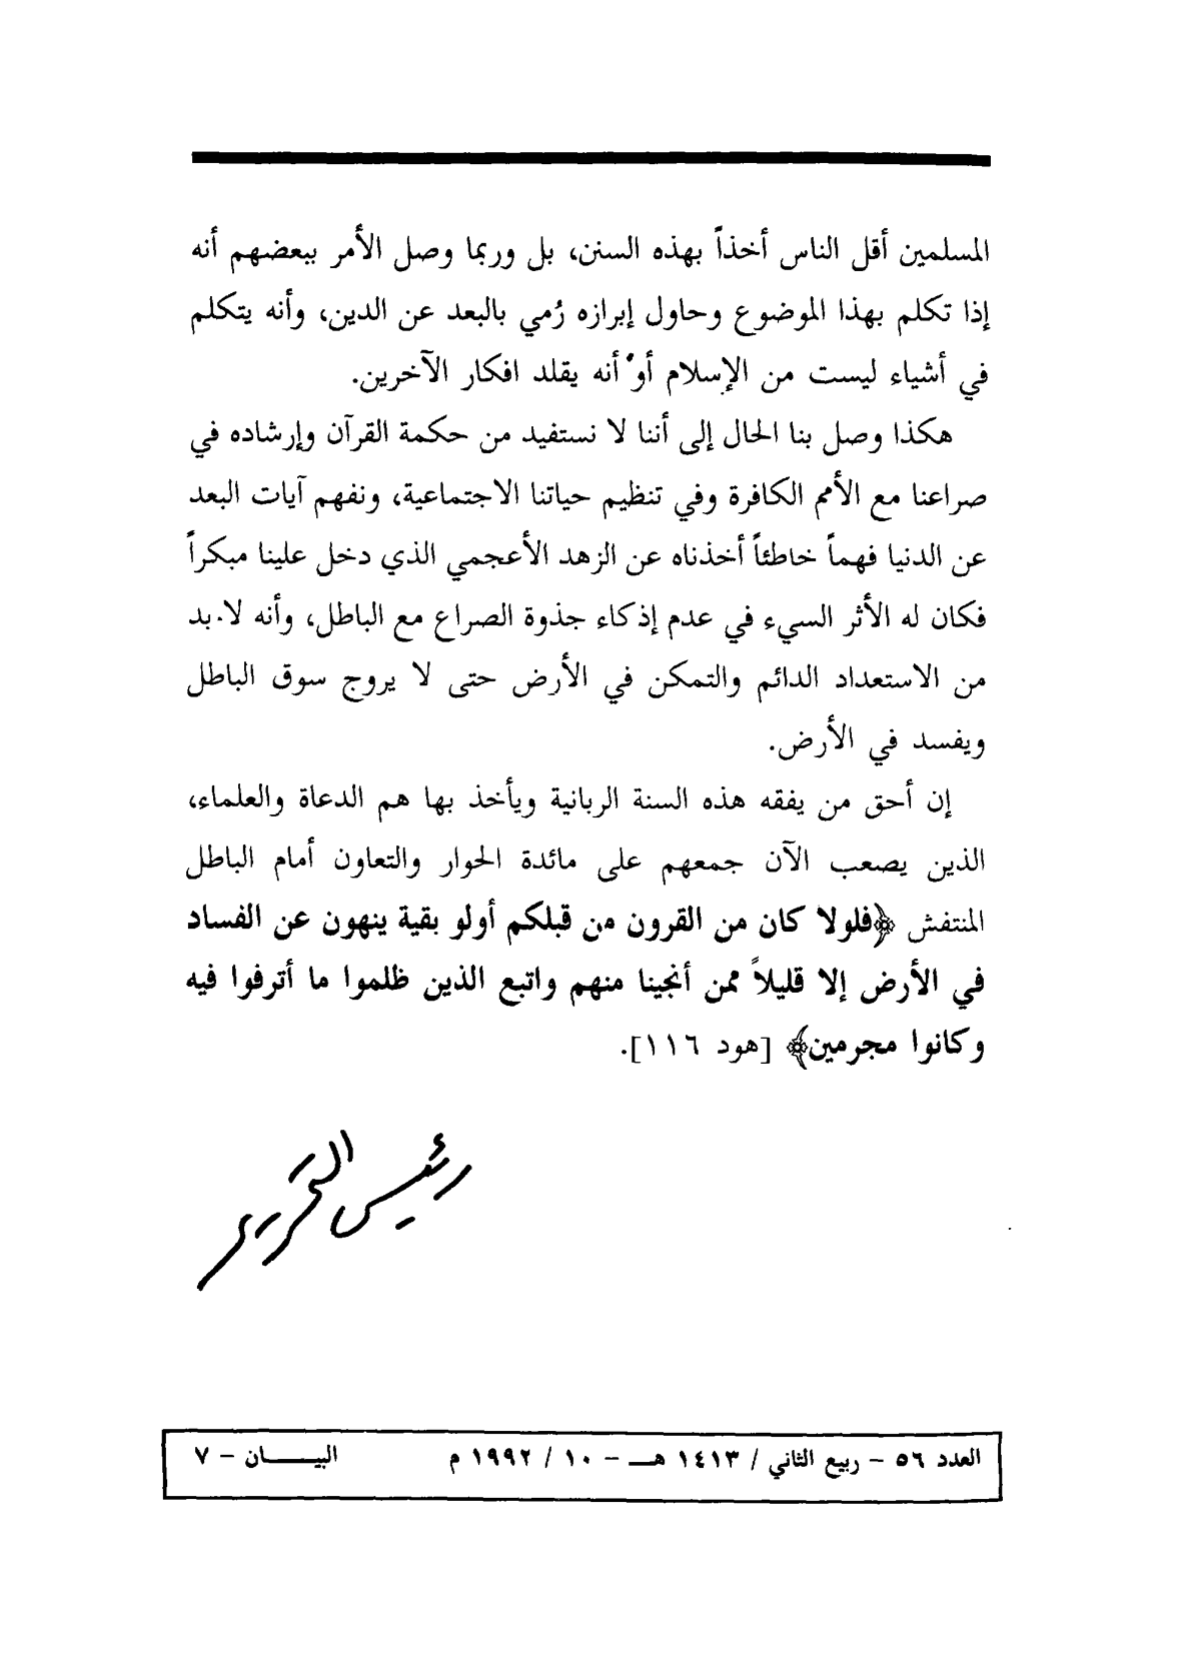 المسلمين أقل الناس أخذاً بهذه السنن، بل وربما وصل الأمر ببعضهم أنه
إذا تكلم بهذا الموضوع وحاول إبرازه رُمي بالبعد عن الدين، وأنه يتكلم
في أشياء ليست من الإسلام أو أنه يقلد افكار الآخرين.
هكذا وصل بنا الحال إلى أننا لا نستفيد من حكمة القرآن وإرشاده في
صراعنا مع الأمم الكافرة وفي تنظيم حياتنا الاجتماعية، ونفهم آيات البعد
عن الدنيا فهماً خاطئاً أخذناه عن الزهد الأعجمي الذي دخل علينا مبكراً
فكان له الأثر السيء في عدم إذكاء جذوة الصراع مع الباطل، وأنه لا بد
من الاستعداد الدائم والتمكن في الأرض حتى لا يروج سوق الباطل
ويفسد في الأرض.
إن أحق من يفقه هذه السنة الربانية ويأخذ بها هم الدعاة والعلماء،
الذين يصعب الآن جمعهم على مائدة الحوار والتعاون أمام الباطل
المنتفش ﴿فلولا كان من القرون من قبلكم أولو بقية ينهون عن الفساد
في الأرض إلا قليلاً ممن أنجينا منهم واتبع الذين ظلموا ما أترفوا فيه
وكانوا مجرمين﴾ [هود ١١٦].
رئيس التحرير
العدد ٥٦ – ربيع الثاني / ١٤١٣ هـ – ١٠ / ١٩٩٢ م البيـــــان – ٧